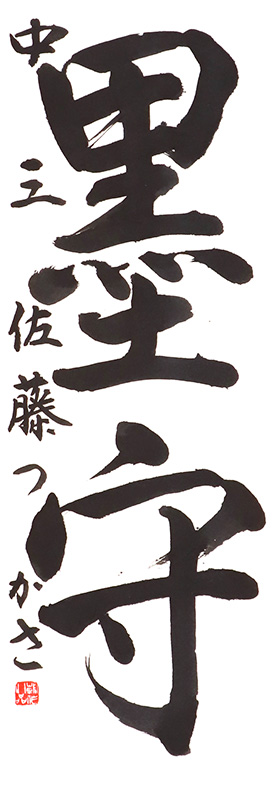 墨守
中三 佐藤つかさ